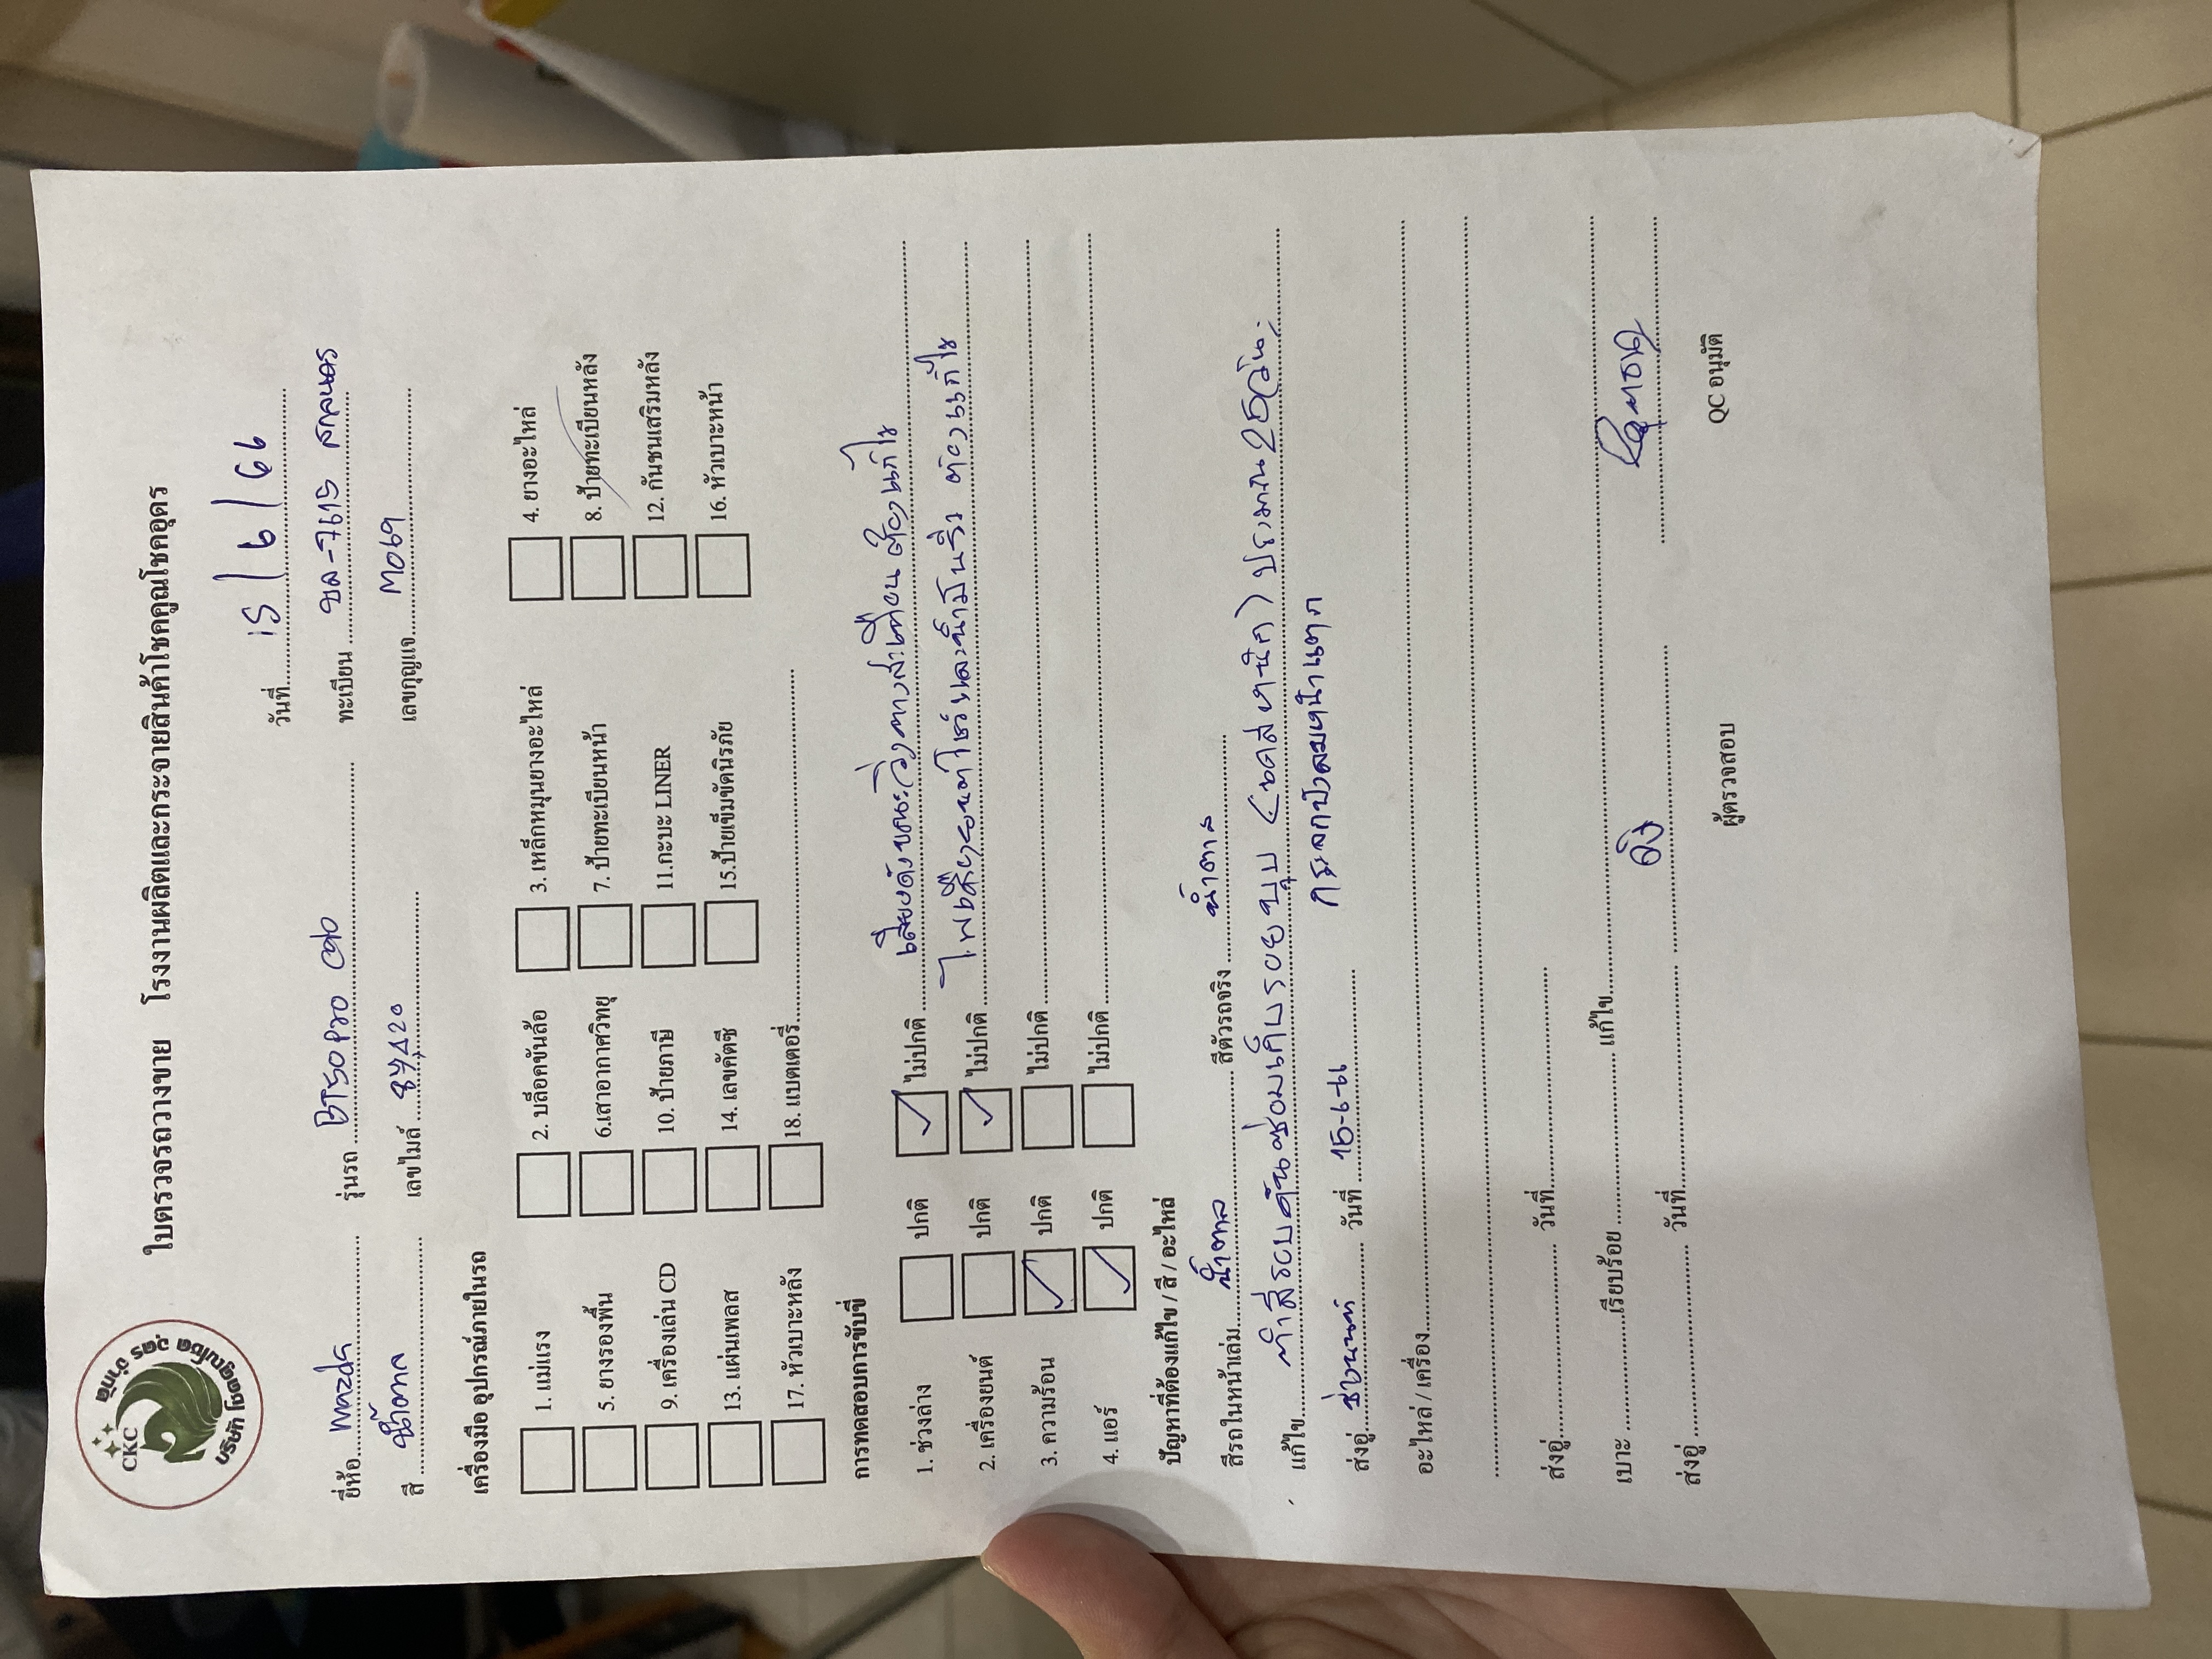 CKC
บริษัท โชคคูณโชค อุดร จำกัด
ใบตรวจรถวางขาย โรงงานผลิตและกระจายสินค้าโชคคูณโชคอุดร
วันที่ 15/6/66
ยี่ห้อ Mazda รุ่นรถ BT50 Pro ทะเบียน สกลนคร
สี น้ำตาล เลขไมล์ เลขกุญแจ M069
เครื่องมือ อุปกรณ์ภายในรถ
1. แม่แรง 2. บล็อคขันล้อ 3. เหล็กหมุนยางอะไหล่ 4. ยางอะไหล่
5. ยางรองพื้น 6.เสาอากาศวิทยุ 7. ป้ายทะเบียนหน้า 8. ป้ายทะเบียนหลัง
9. เครื่องเล่น CD 10. ป้ายภาษี 11.กะบะ LINER 12. กันชนเสริมหลัง
13. แผ่นเพลส 14. เลขคัตซี 15.ป้ายเข็มขัดนิรภัย 16. หัวเบาะหน้า
17. หัวเบาะหลัง 18. แบตเตอรี่
การทดสอบการขับขี่
1. ช่วงล่าง ปกติ ✓ ไม่ปกติ เสียงดังขณะวิ่งทางสะเทือน ต้องแก้ไข
2. เครื่องยนต์ ปกติ ✓ ไม่ปกติ ไฟหัวเครื่องยนต์โชว์และน้ำมันรั่ว ต้องแก้ไข
3. ความร้อน ✓ ปกติ ไม่ปกติ
4. แอร์ ✓ ปกติ ไม่ปกติ
ปัญหาที่ต้องแก้ไข / สี / อะไหล่
สีรถในหน้าเล่ม น้ำตาล สีตัวรถจริง น้ำตาล
แก้ไข ทำสีรอบคันซ่อมเก็บรอยบุบ ประมาณ
ส่งอู่ ช่างนนท์ วันที่ 15-6-66 กระจกบังลมหน้าแตก
อะไหล่ / เครื่อง
ส่งอู่ วันที่
เบาะ เรียบร้อย แก้ไข
ส่งอู่ วันที่
ผู้ตรวจสอบ QC อนุมัติ